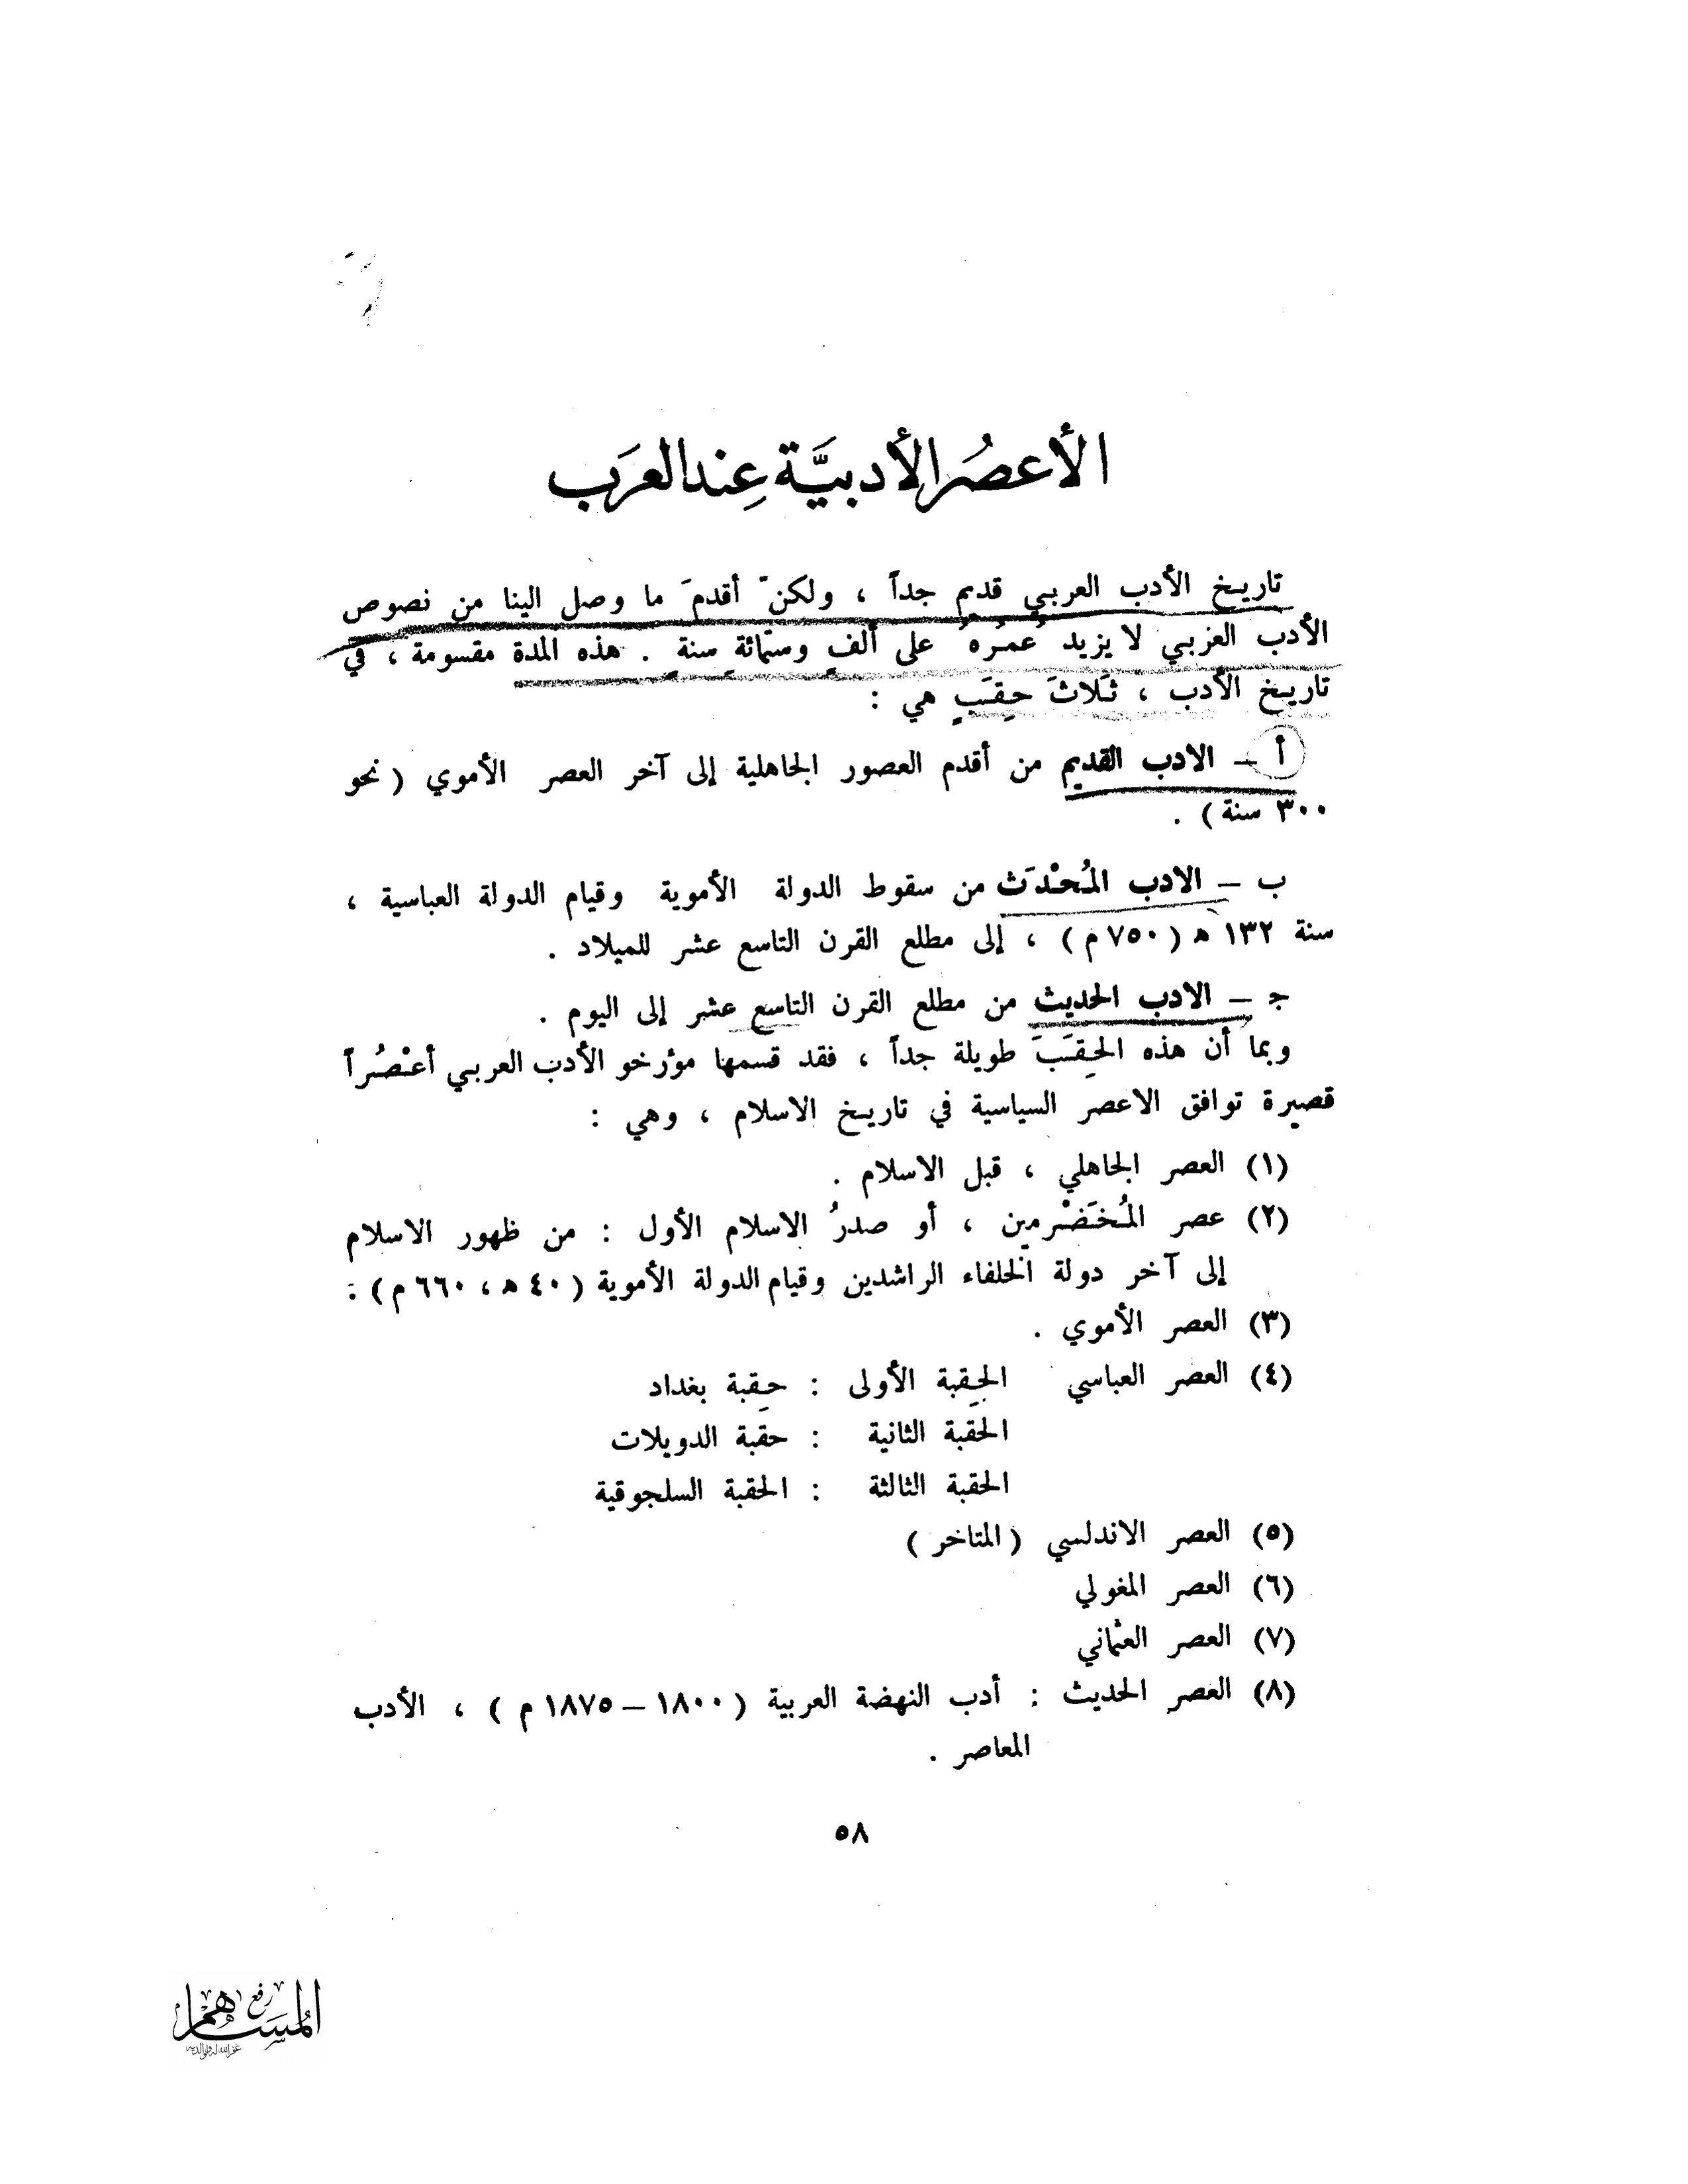 الأعصُر الأدبيَّة عِند العرَب
تاريخ الأدب العربي قديم جداً ، ولكنّ أقدمَ ما وصل الينا من نصوص
الأدب العربي لا يزيد عُمُرهُ على ألفٍ وستمائةِ سنةٍ . هذه المدة مقسومة ، في
تاريخ الأدب ، ثَلاثَ حِقَبٍ هي :
أ – الادب القديم من أقدم العصور الجاهلية إلى آخر العصر الأموي ( نحو
٣٠٠ سنة ) .
ب – الادب المُحْدَث من سقوط الدولة الأموية وقيام الدولة العباسية ،
سنة ١٣٢ ه ( ٧٥٠ م ) ، إلى مطلع القرن التاسع عشر للميلاد .
ج – الادب الحديث من مطلع القرن التاسع عشر إلى اليوم .
وبما أن هذه الحِقَبَ طويلة جداً ، فقد قسمها مؤرخو الأدب العربي أعْصُراً
قصيرة توافق الاعصر السياسية في تاريخ الاسلام ، وهي :
(١) العصر الجاهلي ، قبل الاسلام .
(٢) عصر المُخَضْرمين ، أو صدرُ الاسلام الأول : من ظهور الاسلام
إلى آخر دولة الخلفاء الراشدين وقيام الدولة الأموية ( ٤٠ ه ، ٦٦٠ م ) :
(٣) العصر الأموي .
(٤) العصر العباسي الحِقبة الأولى : حِقبة بغداد
الحقبة الثانية : حقبة الدويلات
الحقبة الثالثة : الحقبة السلجوقية
(٥) العصر الاندلسي ( المتاخر )
(٦) العصر المغولي
(٧) العصر العثماني
(٨) العصر الحديث : أدب النهضة العربية ( ١٨٠٠ – ١٨٧٥ م ) ، الأدب
المعاصر .
٥٨
رفع المساهم
غفر الله له ولوالديه